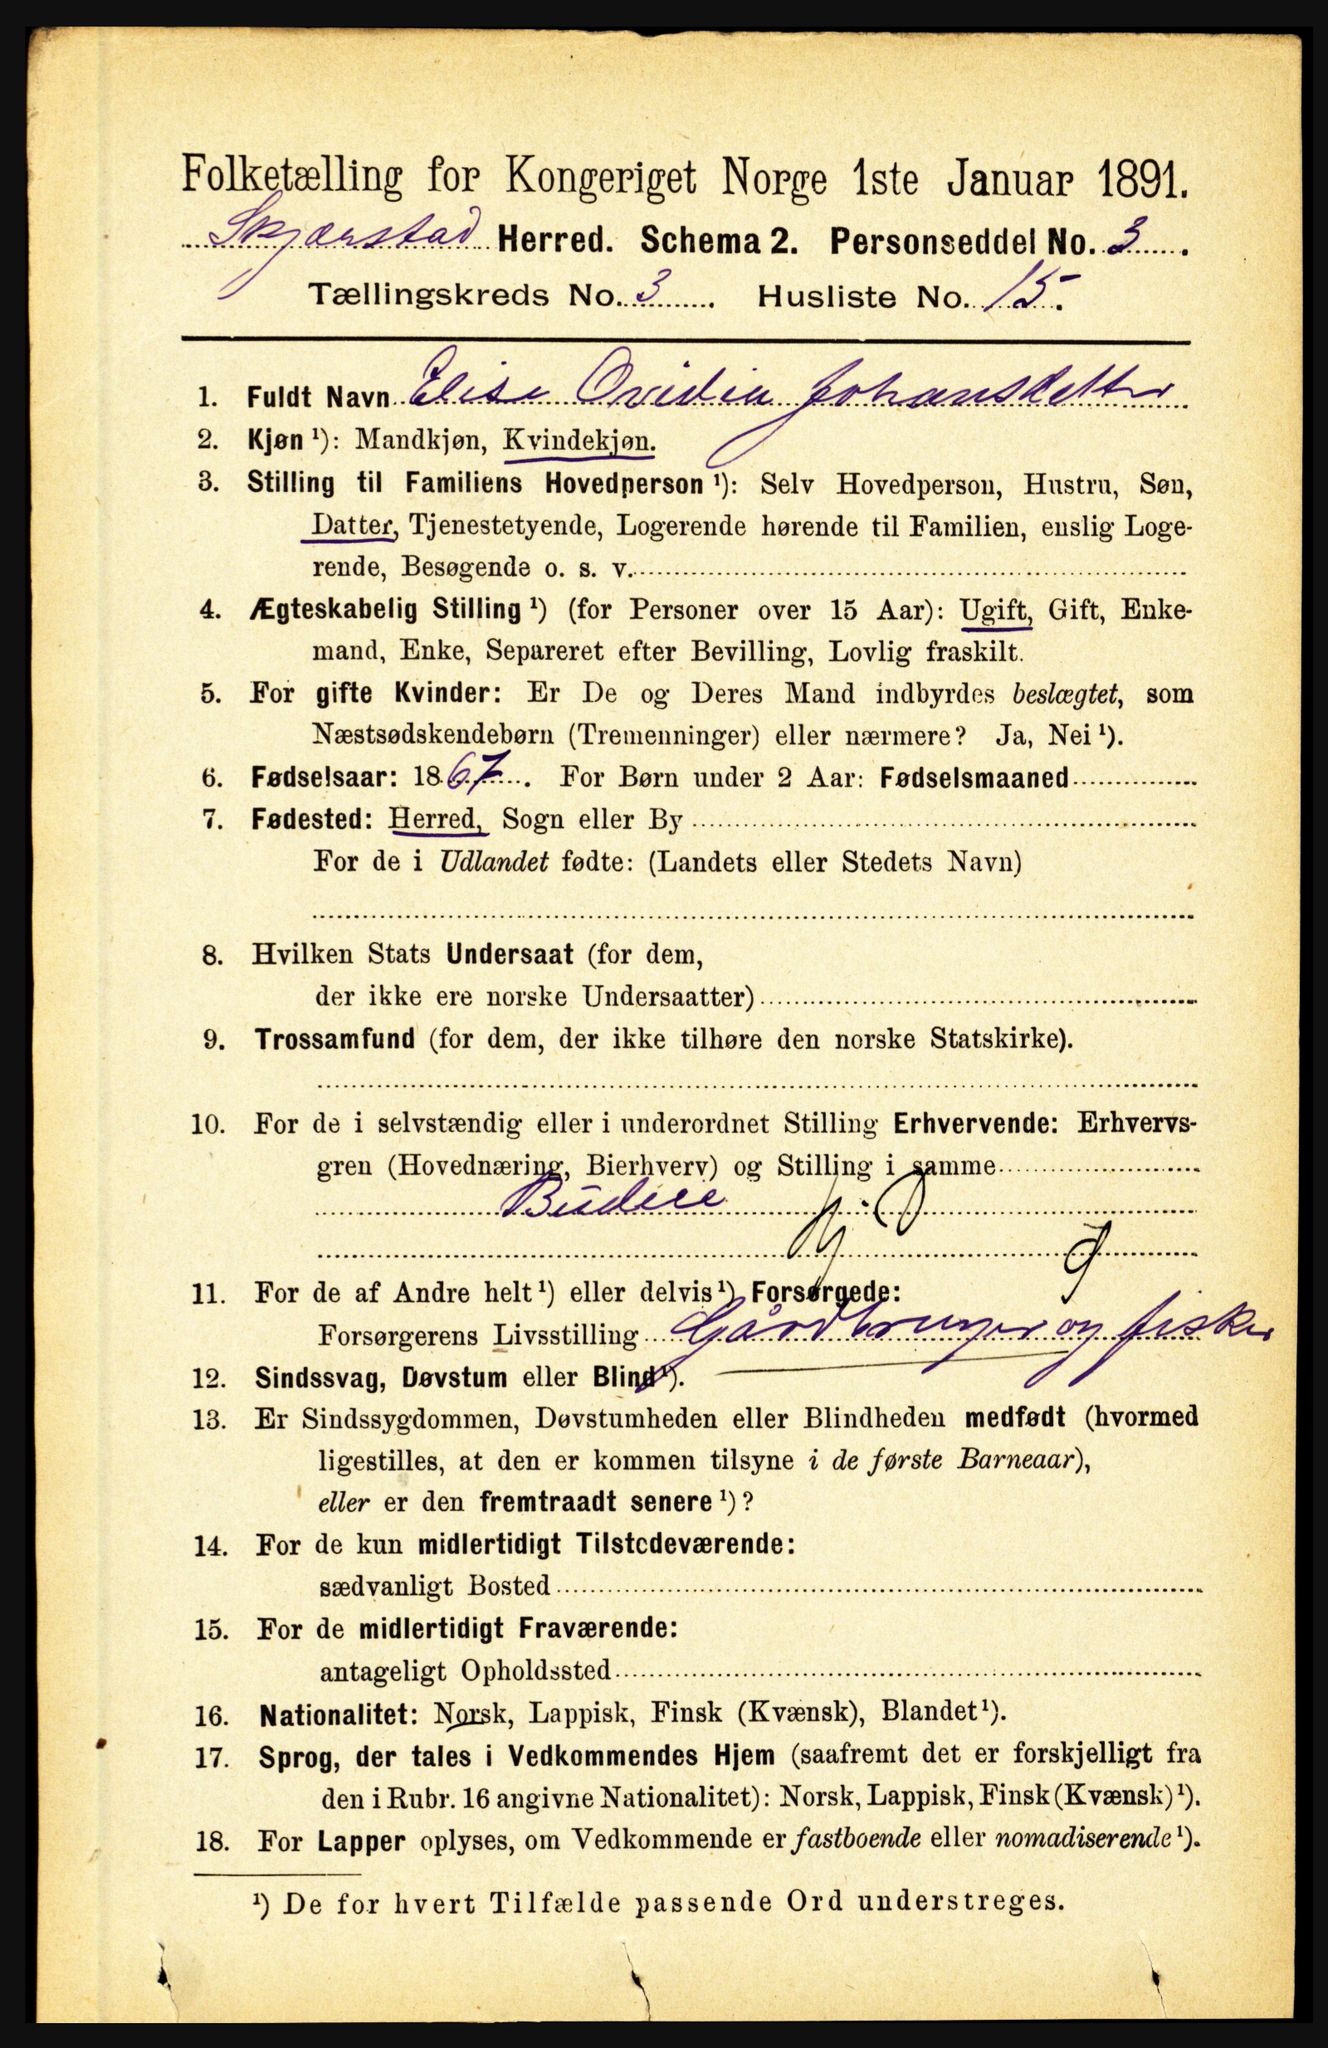 Folketælling for Kongeriget Norge 1ste Januar 1891.
Skjærstad Herred. Schema 2. Personseddel No. 3.
Tællingskreds No. 3. Husliste No. 15.
1. Fuldt Navn Elise Ovidia Johansdatter
2. Kjøn ¹): Mandkjøn, Kvindekjøn.
3. Stilling til Familiens Hovedperson ¹): Selv Hovedperson, Hustru, Søn,
Datter, Tjenestetyende, Logerende hørende til Familien, enslig Loge-
rende, Besøgende o. s. v.
4. Ægteskabelig Stilling ¹) (for Personer over 15 Aar): Ugift, Gift, Enke-
mand, Enke, Separeret efter Bevilling, Lovlig fraskilt.
5. For gifte Kvinder: Er De og Deres Mand indbyrdes beslægtet, som
Næstsødskendebørn (Tremenninger) eller nærmere? Ja, Nei ¹).
6. Fødselsaar: 1867. For Børn under 2 Aar: Fødselsmaaned
7. Fødested: Herred, Sogn eller By
For de i Udlandet fødte: (Landets eller Stedets Navn)
8. Hvilken Stats Undersaat (for dem,
der ikke ere norske Undersaatter)
9. Trossamfund (for dem, der ikke tilhøre den norske Statskirke).
10. For de i selvstændig eller i underordnet Stilling Erhvervende: Erhvervs-
gren (Hovednæring, Bierhverv) og Stilling i samme
Budeie
11. For de af Andre helt ¹) eller delvis ¹) Forsørgede:
Forsørgerens Livsstilling Gårdbruger og fisker
12. Sindssvag, Døvstum eller Blind ¹).
13. Er Sindssygdommen, Døvstumheden eller Blindheden medfødt (hvormed
ligestilles, at den er kommen tilsyne i de første Barneaar),
eller er den fremtraadt senere ¹)?
14. For de kun midlertidigt Tilstedeværende:
sædvanligt Bosted
15. For de midlertidigt Fraværende:
antageligt Opholdssted
16. Nationalitet: Norsk, Lappisk, Finsk (Kvænsk), Blandet ¹).
17. Sprog, der tales i Vedkommendes Hjem (saafremt det er forskjelligt fra
den i Rubr. 16 angivne Nationalitet): Norsk, Lappisk, Finsk (Kvænsk) ¹).
18. For Lapper oplyses, om Vedkommende er fastboende eller nomadiserende ¹).
¹) De for hvert Tilfælde passende Ord understreges.